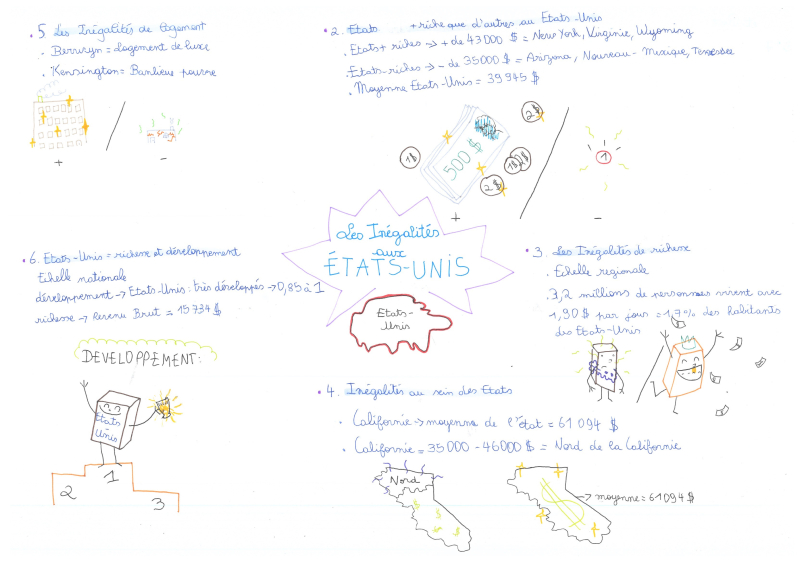 . 5 Les Inégalités de logement
. Berruyn = Logement de luxe
. Kensington = Banlieue pauvre
+
-
. 2. Etats + riche que d'autres au Etats-Unis
. Etats + riches -> + de 43000 $ = New York, Virginie, Wyoming
. Etats-riches -> - de 35000 $ = Arizona, Nouveau-Mexique, Tennessee
. Moyenne Etats-Unis = 39 945 $
500 $
1$
2$
1$
1$
2$
1
+
-
Les Inégalités
aux
ÉTATS-UNIS
Etats-
Unis
. 6. Etats-Unis = richesse et développement
Echelle nationale
développement -> Etats-Unis : très développés -> 0,85 à 1
richesse -> Revenu Brut = 15 734 $
DEVELOPPEMENT:
Etats
Unis
1
2
3
. 3. Les Inégalités de richesse
. Echelle regionale
. 3,2 millions de personnes vivent avec
1,90 $ par jour = 1,7% des habitants
des Etats-Unis
. 4. Inégalités au sein des Etats
. Californie -> moyenne de l'état = 61 094 $
. Californie = 35 000 - 46000 $ = Nord de la Californie
Nord
$
$
$ $
$
-> moyenne = 61094 $